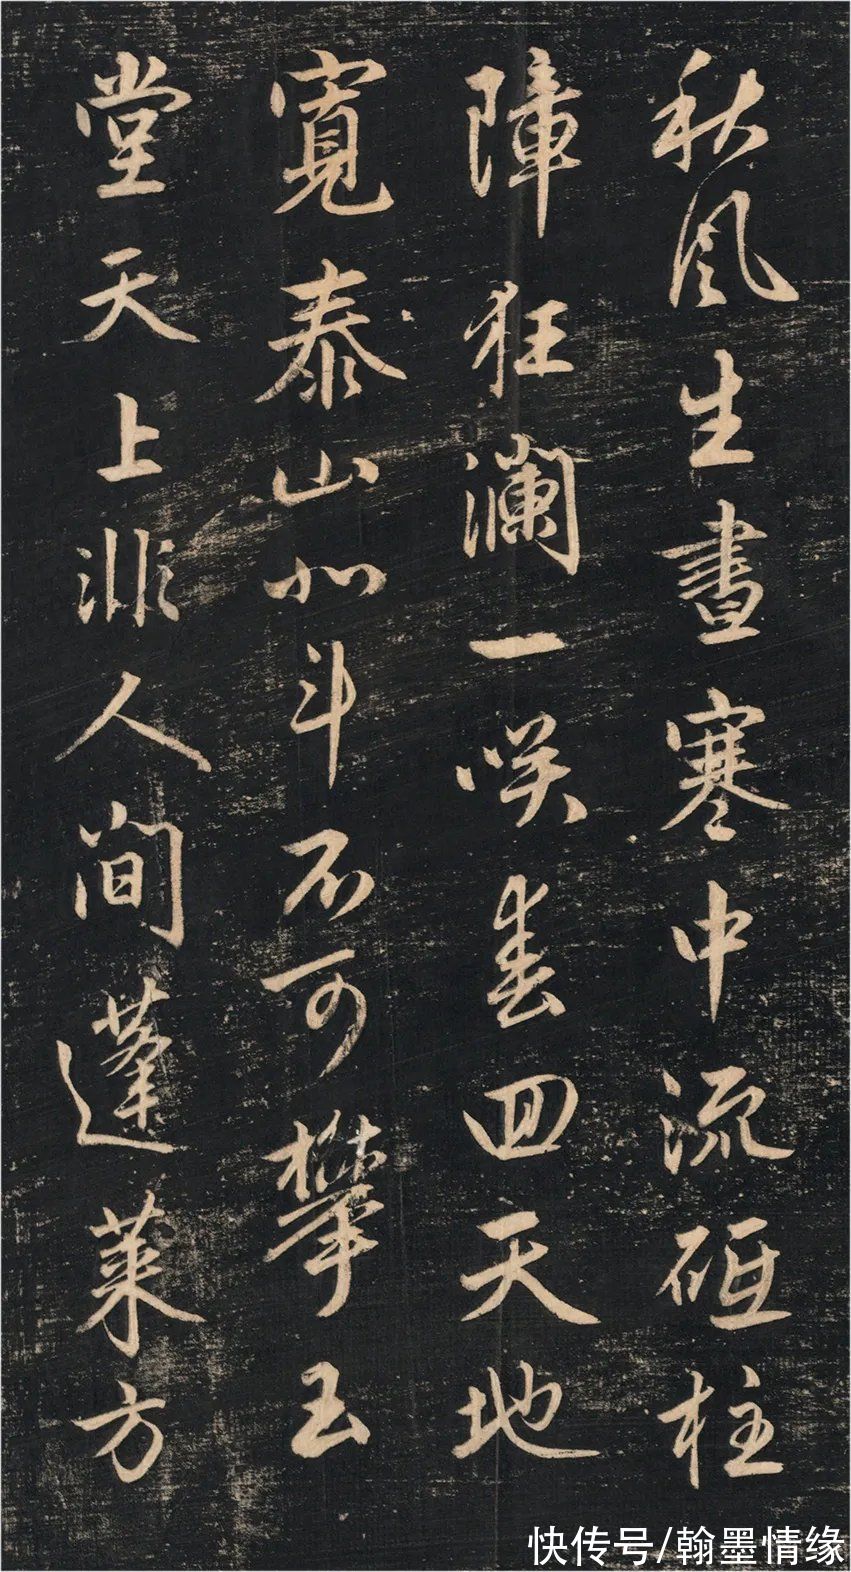 秋風生晝寒中流砥柱
障狂瀾一咲春回天地
寬泰山北斗不可攀玉
堂天上非人間蓬萊方
快传号/翰墨情缘